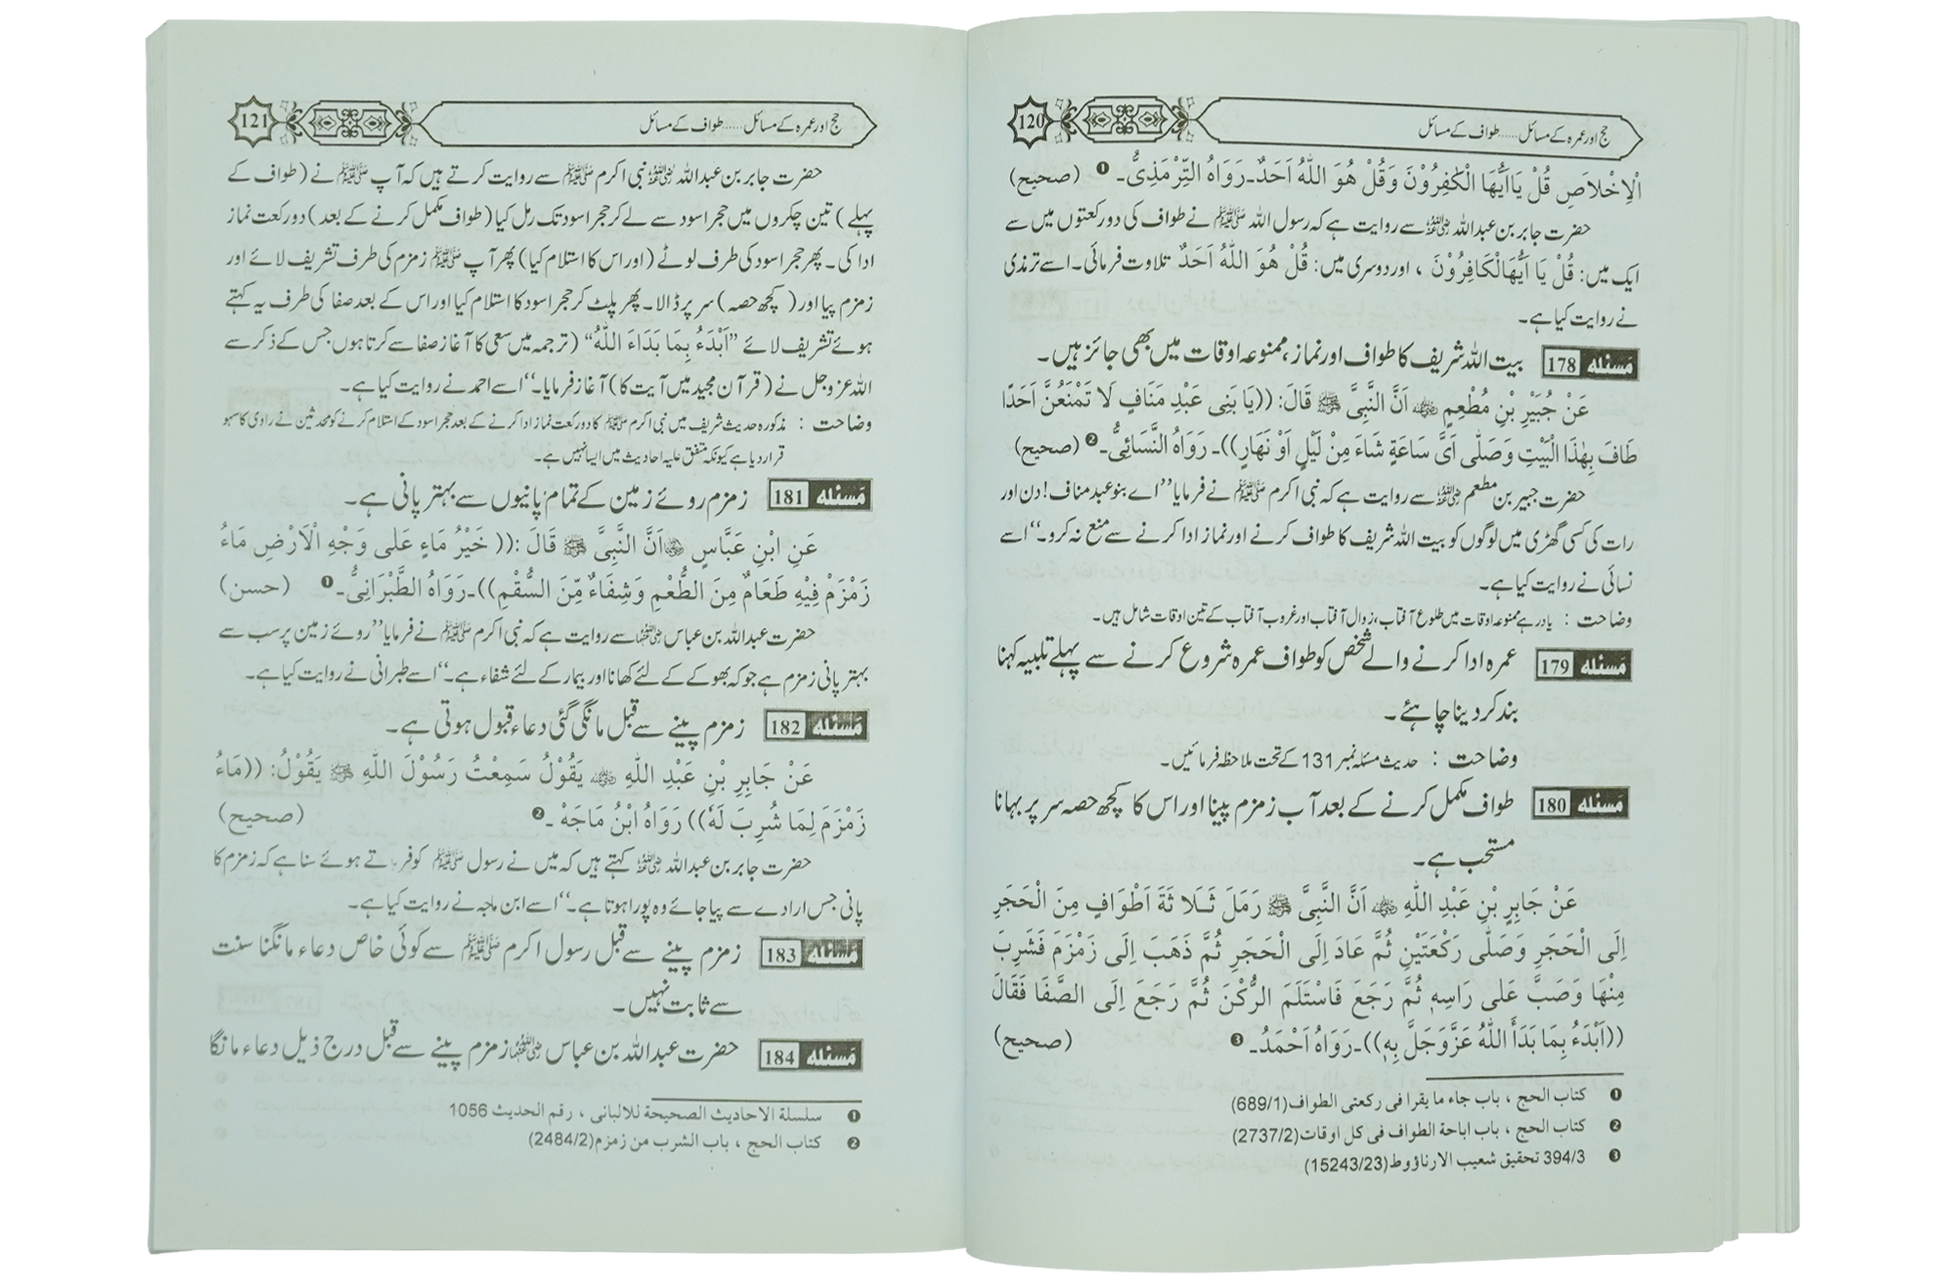 حج اور عمرہ کے مسائل ...... طواف کے مسائل
120
الْاِخْلَاصِ قُلْ یَا اَیُّھَا الْکٰفِرُوْنَ وَقُلْ ھُوَ اللّٰہُ اَحَدٌ۔رَوَاہُ التِّرْمَذِیُّ۔❶ (صحیح)
حضرت جابر بن عبداللہ رضی اللہ عنہ سے روایت ہے کہ رسول اللہ ﷺ نے طواف کی دو رکعتوں میں سے
ایک میں: قُلْ یَا اَیُّھَالْکَافِرُوْنَ ، اور دوسری میں: قُلْ ھُوَ اللّٰہُ اَحَدٌ تلاوت فرمائی۔ اسے ترمذی
نے روایت کیا ہے۔
مَسئله 178 بیت اللہ شریف کا طواف اور نماز، ممنوعہ اوقات میں بھی جائز ہیں۔
عَنْ جُبَیْرِ بْنِ مُطْعِمٍ رضی اللہ عنہ اَنَّ النَّبِیَّ ﷺ قَالَ: ((یَا بَنِی عَبْدِ مَنَافٍ لَا تَمْنَعُنَّ اَحَدًا
طَافَ بِھٰذَا الْبَیْتِ وَصَلّٰی اَیَّ سَاعَةٍ شَاءَ مِنْ لَیْلٍ اَوْ نَھَارٍ))۔ رَوَاہُ النَّسَائِیُّ۔❷ (صحیح)
حضرت جبیر بن مطعم رضی اللہ عنہ سے روایت ہے کہ نبی اکرم ﷺ نے فرمایا ”اے بنو عبد مناف! دن اور
رات کی کسی گھڑی میں لوگوں کو بیت اللہ شریف کا طواف کرنے اور نماز ادا کرنے سے منع نہ کرو۔“ اسے
نسائی نے روایت کیا ہے۔
وضاحت : یاد رہے ممنوعہ اوقات میں طلوع آفتاب، زوال آفتاب اور غروب آفتاب کے تین اوقات شامل ہیں۔
مَسئله 179 عمرہ ادا کرنے والے شخص کو طواف عمرہ شروع کرنے سے پہلے تلبیہ کہنا
بند کر دینا چاہئے۔
وضاحت : حدیث مسئلہ نمبر 131 کے تحت ملاحظہ فرمائیں۔
مَسئله 180 طواف مکمل کرنے کے بعد آب زمزم پینا اور اس کا کچھ حصہ سر پر بہانا
مستحب ہے۔
عَنْ جَابِرِ بْنِ عَبْدِ اللّٰہِ رضی اللہ عنہ اَنَّ النَّبِیَّ ﷺ رَمَلَ ثَـلَا ثَةَ اَطْوَافٍ مِنَ الْحَجَرِ
اِلَی الْحَجَرِ وَصَلّٰی رَکْعَتَیْنِ ثُمَّ عَادَ اِلَی الْحَجَرِ ثُمَّ ذَھَبَ اِلَی زَمْزَمَ فَشَرِبَ
مِنْھَا وَصَبَّ عَلٰی رَاسِهٖ ثُمَّ رَجَعَ فَاسْتَلَمَ الرُّکْنَ ثُمَّ رَجَعَ اِلَی الصَّفَا فَقَالَ
((اَبْدَءُ بِمَا بَدَأَ اللّٰہُ عَزَّوَجَلَّ بِهٖ))۔رَوَاہُ اَحْمَدُ۔❸ (صحیح)
❶ کتاب الحج ، باب جاء ما یقرا فی رکعتی الطواف(689/1)
❷ کتاب الحج ، باب اباحة الطواف فی کل اوقات(2737/2)
❸ 394/3 تحقیق شعیب الارناؤوط(15243/23)
حج اور عمرہ کے مسائل ...... طواف کے مسائل
121
حضرت جابر بن عبداللہ رضی اللہ عنہ نبی اکرم ﷺ سے روایت کرتے ہیں کہ آپ ﷺ نے (طواف کے
پہلے) تین چکروں میں حجر اسود سے لے کر حجر اسود تک رمل کیا (طواف مکمل کرنے کے بعد) دو رکعت نماز
ادا کی۔ پھر حجر اسود کی طرف لوٹے (اور اس کا استلام کیا) پھر آپ ﷺ زمزم کی طرف تشریف لائے اور
زمزم پیا اور (کچھ حصہ) سر پر ڈالا۔ پھر پلٹ کر حجر اسود کا استلام کیا اور اس کے بعد صفا کی طرف یہ کہتے
ہوئے تشریف لائے ”اَبْدَءُ بِمَا بَدَاءَ اللّٰہُ“ (ترجمہ میں سعی کا آغاز صفا سے کرتا ہوں جس کے ذکر سے
اللہ عزوجل نے (قرآن مجید میں آیت کا) آغاز فرمایا۔“ اسے احمد نے روایت کیا ہے۔
وضاحت : مذکورہ حدیث شریف میں نبی اکرم ﷺ کا دو رکعت نماز ادا کرنے کے بعد حجر اسود کے استلام کرنے کو محدثین نے راوی کا سہو
قرار دیا ہے کیونکہ متفق علیہ احادیث میں ایسا نہیں ہے۔
مَسئله 181 زمزم روئے زمین کے تمام پانیوں سے بہتر پانی ہے۔
عَنِ ابْنِ عَبَّاسٍ رضی اللہ عنہ اَنَّ النَّبِیَّ ﷺ قَالَ :(( خَیْرُ مَاءٍ عَلٰی وَجْهِ الْاَرْضِ مَاءُ
زَمْزَمَ فِیْهِ طَعَامٌ مِنَ الطُّعْمِ وَشِفَاءٌ مِّنَ السُّقْمِ))۔رَوَاہُ الطَّبْرَانِیُّ۔❶ (حسن)
حضرت عبداللہ بن عباس رضی اللہ عنہما سے روایت ہے کہ نبی اکرم ﷺ نے فرمایا ”روئے زمین پر سب سے
بہتر پانی زمزم ہے جو کہ بھوکے کے لئے کھانا اور بیمار کے لئے شفاء ہے۔“ اسے طبرانی نے روایت کیا ہے۔
مَسئله 182 زمزم پینے سے قبل مانگی گئی دعاء قبول ہوتی ہے۔
عَنْ جَابِرِ بْنِ عَبْدِ اللّٰهِ رضی اللہ عنہ یَقُوْلُ سَمِعْتُ رَسُوْلَ اللّٰهِ ﷺ یَقُوْلُ: ((مَاءُ
زَمْزَمَ لِمَا شُرِبَ لَهٗ)) رَوَاہُ ابْنُ مَاجَهْ ۔❷ (صحیح)
حضرت جابر بن عبداللہ رضی اللہ عنہ کہتے ہیں کہ میں نے رسول ﷺ کو فرماتے ہوئے سنا ہے کہ زمزم کا
پانی جس ارادے سے پیا جائے وہ پورا ہوتا ہے۔“ اسے ابن ماجہ نے روایت کیا ہے۔
مَسئله 183 زمزم پینے سے قبل رسول اکرم ﷺ سے کوئی خاص دعاء مانگنا سنت
سے ثابت نہیں۔
مَسئله 184 حضرت عبداللہ بن عباس رضی اللہ عنہما زمزم پینے سے قبل درج ذیل دعاء مانگا
❶ سلسلة الاحادیث الصحیحة للالبانی ، رقم الحدیث 1056
❷ کتاب الحج ، باب الشرب من زمزم(2484/2)